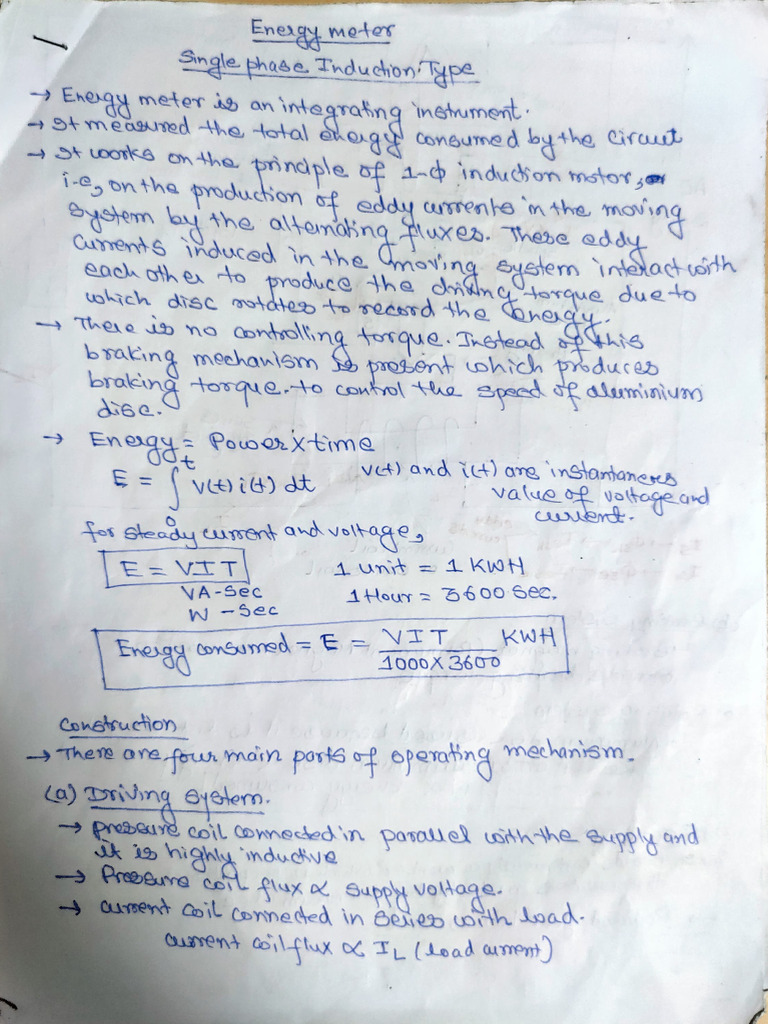 Energy meter
Single phase Induction Type
→ Energy meter is an integrating instrument.
→ It measured the total energy consumed by the circuit
→ It works on the principle of 1-ϕ induction motor,
i.e, on the production of eddy currents in the moving
system by the alternating fluxes. These eddy
currents induced in the moving system interact with
each other to produce the driving torque due to
which disc rotates to record the energy.
→ There is no controlling torque. Instead of this
braking mechanism is present which produces
braking torque. to control the speed of aluminium
disc.
→ Energy = Power x time
E = ∫₀ᵗ v(t) i(t) dt v(t) and i(t) are instantaneous
value of voltage and
current.
for steady current and voltage,
E = VIT 1 unit = 1 KWH
VA-Sec 1 Hour = 3600 Sec.
W - Sec
Energy consumed = E = VIT / 1000 X 3600 KWH
Construction
→ There are four main parts of operating mechanism.
(a) Driving system.
→ pressure coil connected in parallel with the supply and
it is highly inductive
→ Pressure coil flux ∝ supply voltage.
→ current coil connected in series with load.
current coil flux ∝ IL (load current)